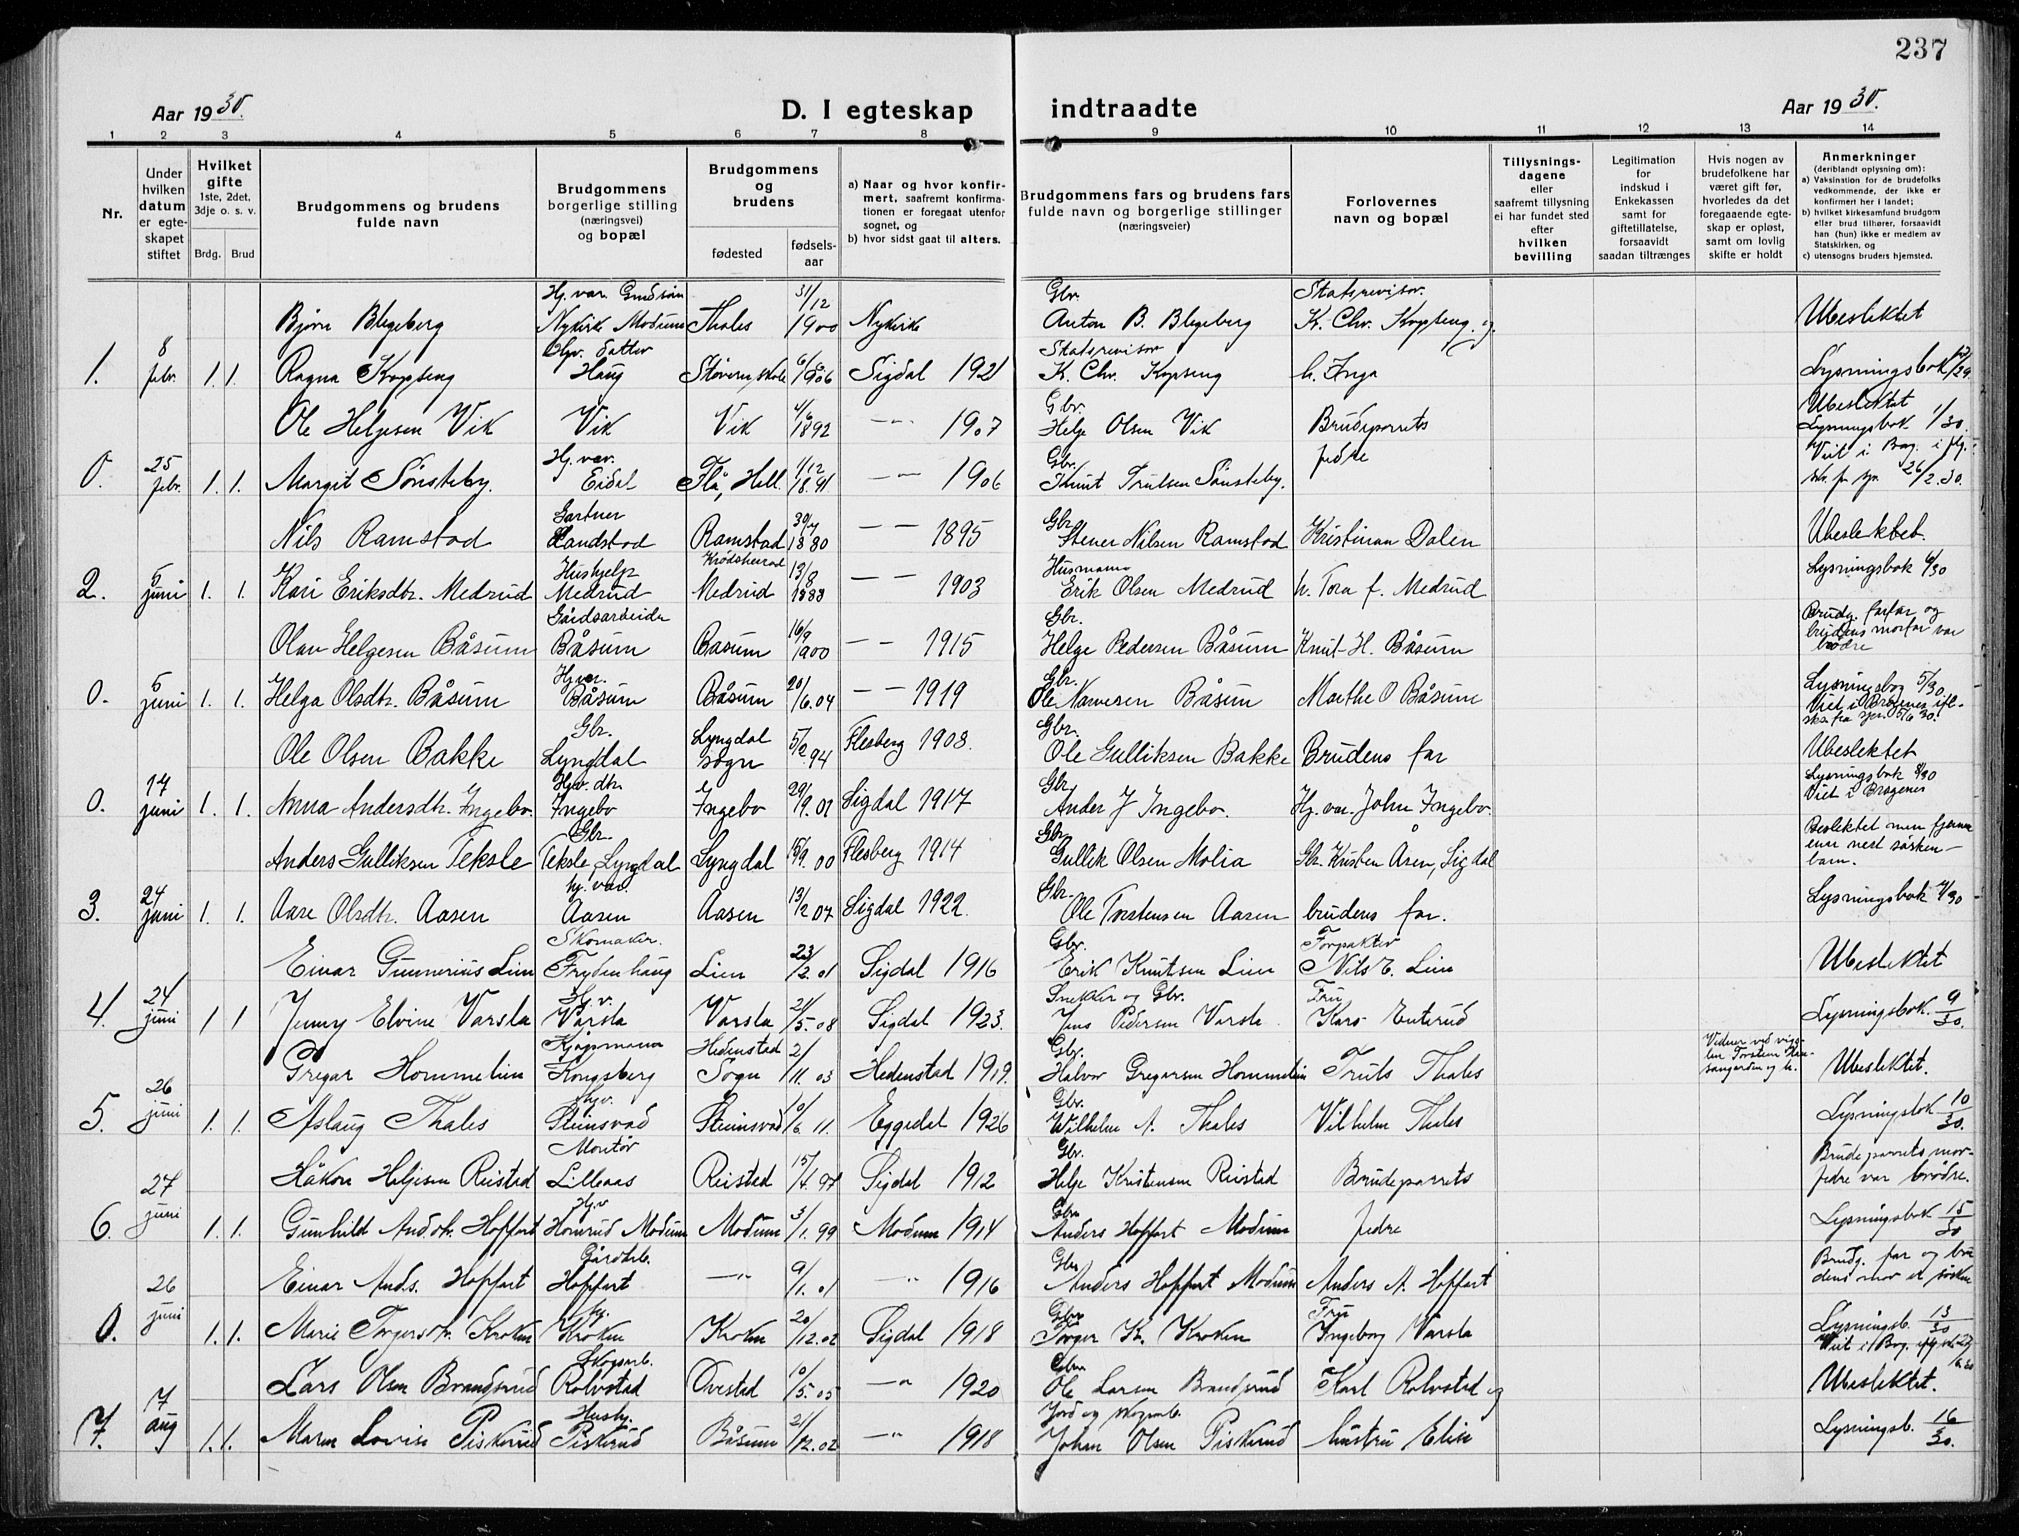 237
Aar 1930. D. I egteskap indtraadte Aar 1930.
1 2 3 4 5 6 7 8 9 10 11 12 13 14
Nr.
Under hvilken datum er egteskapet stiftet
Hvilket gifte 1ste, 2det, 3dje o. s. v.
Brdg. Brud
Brudgommens og brudens fulde navn
Brudgommens borgerlige stilling (næringsvei) og bopæl
Brudgommens og brudens
fødested
fødsels-aar
a) Naar og hvor konfirmert, saafremt konfirmationen er foregaat utenfor sognet, og
b) hvor sidst gaat til alters.
Brudgommens fars og brudens fars fulde navn og borgerlige stillinger (næringsveier)
Forlovernes navn og bopæl
Tillysnings-dagene eller saafremt tillysning ei har fundet sted efter hvilken bevilling
Legitimation for indskud i Enkekassen samt for giftetillatelse, forsaavidt saadan tiltrænges
Hvis nogen av brudefolkene har været gift før, hvorledes da det foregaaende egteskap er opløst, samt om lovlig skifte er holdt
Anmerkninger (deriblandt oplysning om):
a) Vaksination for de brudefolks vedkommende, der ikke er konfirmert her i landet;
b) hvilket kirkesamfund brudgom eller brud tilhører, forsaavidt han (hun) ikke er medlem av Statskirken, og
c) utensogns bruders hjemsted.
Hj. var. Gmdsøn 31/12 Gbr. Statsrevisor.
Bjørn Blegeberg Nykirke Modum Thales 1900 Nykirke Anton B. Blegeberg K. Chr. Kopseng og Ubeslektet
8 Gbr. datter 6/8 Statsrevisor
1. febr. 1. 1. Ragna Kopseng Haug Støveren skole 1906 Sigdal 1921 K. Chr. Kopseng h. Inga Lysningsbok 12/29
4/6 Gbr. Ubeslektet
Ole Helgesen Vik Vik Vik 1892 -"- 1907 Helge Olsen Vik Brudeparrets Lysningsbok 1/30.
25 Hj. var. 1/12 Gbr. fedre Viet i Brag. ifly.
0. febr. 1. 1. Margit Sønsteby. Eidal Flå, Hall. 1891 -"- 1906 Knut Trulsen Sønsteby. skr. fr. spr. 26/2.30.
Gartner 30/4 Gbr.
Nils Ramstad Landstad Ramstad 1880 -"- 1895 Stener Nilsen Ramstad Kristian Dalen Ubeslektet.
5 Hushjelp Krødsherad 13/8 Husmann Lysningsbok 6/30
2. juni 1. 1. Kari Eriksdtr. Medrud Medrud Medrud 1883 -"- 1903 Erik Olsen Medrud h. Tora f. Medrud
Gårdsarbeider 16/9 Gbr. Brudg. farfar og brudens morfar var brødre
Olav Helgesen Båsum Båsum Båsum 1900 -"- 1915 Helge Pedersen Båsum Knut H. Båsum
5 Hj. var. 20/ Gbr. Lysningsbog 5/30.
0. juni 1. 1. Helga Olsdtr. Båsum Båsum Båsum /6.04 -"- 1919 Ole Narvesen Båsum Marthe O Båsum Viet i Bragenes ifl. skr. fra spr. 5/6 30.
Gbr. Lyngdal 5/ Gbr.
Ole Olsen Bakke Lyngdal sogn /2 94 Flesberg 1908. Ole Gulliksen Bakke Brudens far Ubeslektet
14 Hjv. dtr. 29/ Gbr. Lysningsbok 8/30
0. juni 1. 1. Anna Andersdtr. Ingebo. Ingebo Ingebo /9.01 Sigdal 1917 Ander J Ingebo. Hj. var. John Ingebo. Viet i Bragenes
Gbr. 15/ Gbr. Beslektet men fjernere enn nest søskenbarn.
Anders Gulliksen Teksle Teksle, Lyngdal Lyngdal /9. 00 Flesberg 1914 Gullik Olsen Molia Gbr. Kristen Åsen, Sigdal
24 hj. var. 13/ Gbr.
3. juni 1. 1. Aase Olsdtr. Aasen Aasen Aasen /2 07 Sigdal 1922. Ole Torstensen Aasen brudens far. Lysningsbok 7/30
Skomaker. 23/ Gbr. Forpakter
Einar Gunnerius Lien Frydenhaug Lien /2. 01 Sigdal 1916 Erik Knutsen Lien Nils E. Lien Ubeslektet
24 Hj. v. 21/ Snekker og Gbr. Fru
4. juni 1 1 Jenny Elvine Varsla Varsla Varsla /5. 08 Sigdal 1923. Jens Pedersen Varsla Karo Enterud Lysningsbok. 9/30.
Kjøpmann Hedenstad 2/ Gbr. Vidner ved vigslen Torstein
Gregar Hommelien Kongsberg Sogn /11. 03 Hedenstad 1919. Halvor Gregarsen Hommelien Truls Thales Ubeslektet.
26 hjv. 10/ Gbr.
5. juni 1. 1. Aslaug Thales Steinsvad Steinsvad /6. 11. Eggedal 1926 Wilhelm A. Thales Vilhelm Thales Lysningsbok 10/30.
Montør 15/ Gbr. Brudeparrets mor-
Håkon Helgesen Reistad Lilleaas Reistad /4. 97 Sigdal 1912 Helge Kristensen Reistad Brudeparrets fedre var brødre.
27 Hjv 3/ Gbr.
6. juni 1. 1. Gunhild Andsdtr. Hoffart Homrud Modum Modum /1. 99 Modum 1914 Anders Hoffart Modum fedre Lysningsbok 15/30
Gårdarb. 9/ Gbr. Brudg. far og bru
Einar Ands. Hoffart Hoffart -"- /1. 01 -"- 1916 Anders Hoffart Modum Anders A. Hoffart dens mor er søsken
26 Hj. 20/ Gbr. Fru
0. juni 1. 1. Marie Torgersdtr. Kroken Kroken Kroken /12.02 Sigdal 1918 Torger Kr. Kroken Ingeborg Varsla Lysningsb. 13/30
Skogsarb. 10/ Gbr.
Lars Olsen Brandsrud Rolvstad Ovestad /5. 05 -"- 1920 Ole Larsen Brandsrud Karl Rolvstad og Ubeslektet.
7 Hushj. 21/ Jord og skogarb.
7. aug 1. 1. Maren Lovise Piskerud Piskerud Båsum /12.02 -"- 1918 Johan Olsen Piskerud hustru Elise Lysningsb. 16/30.